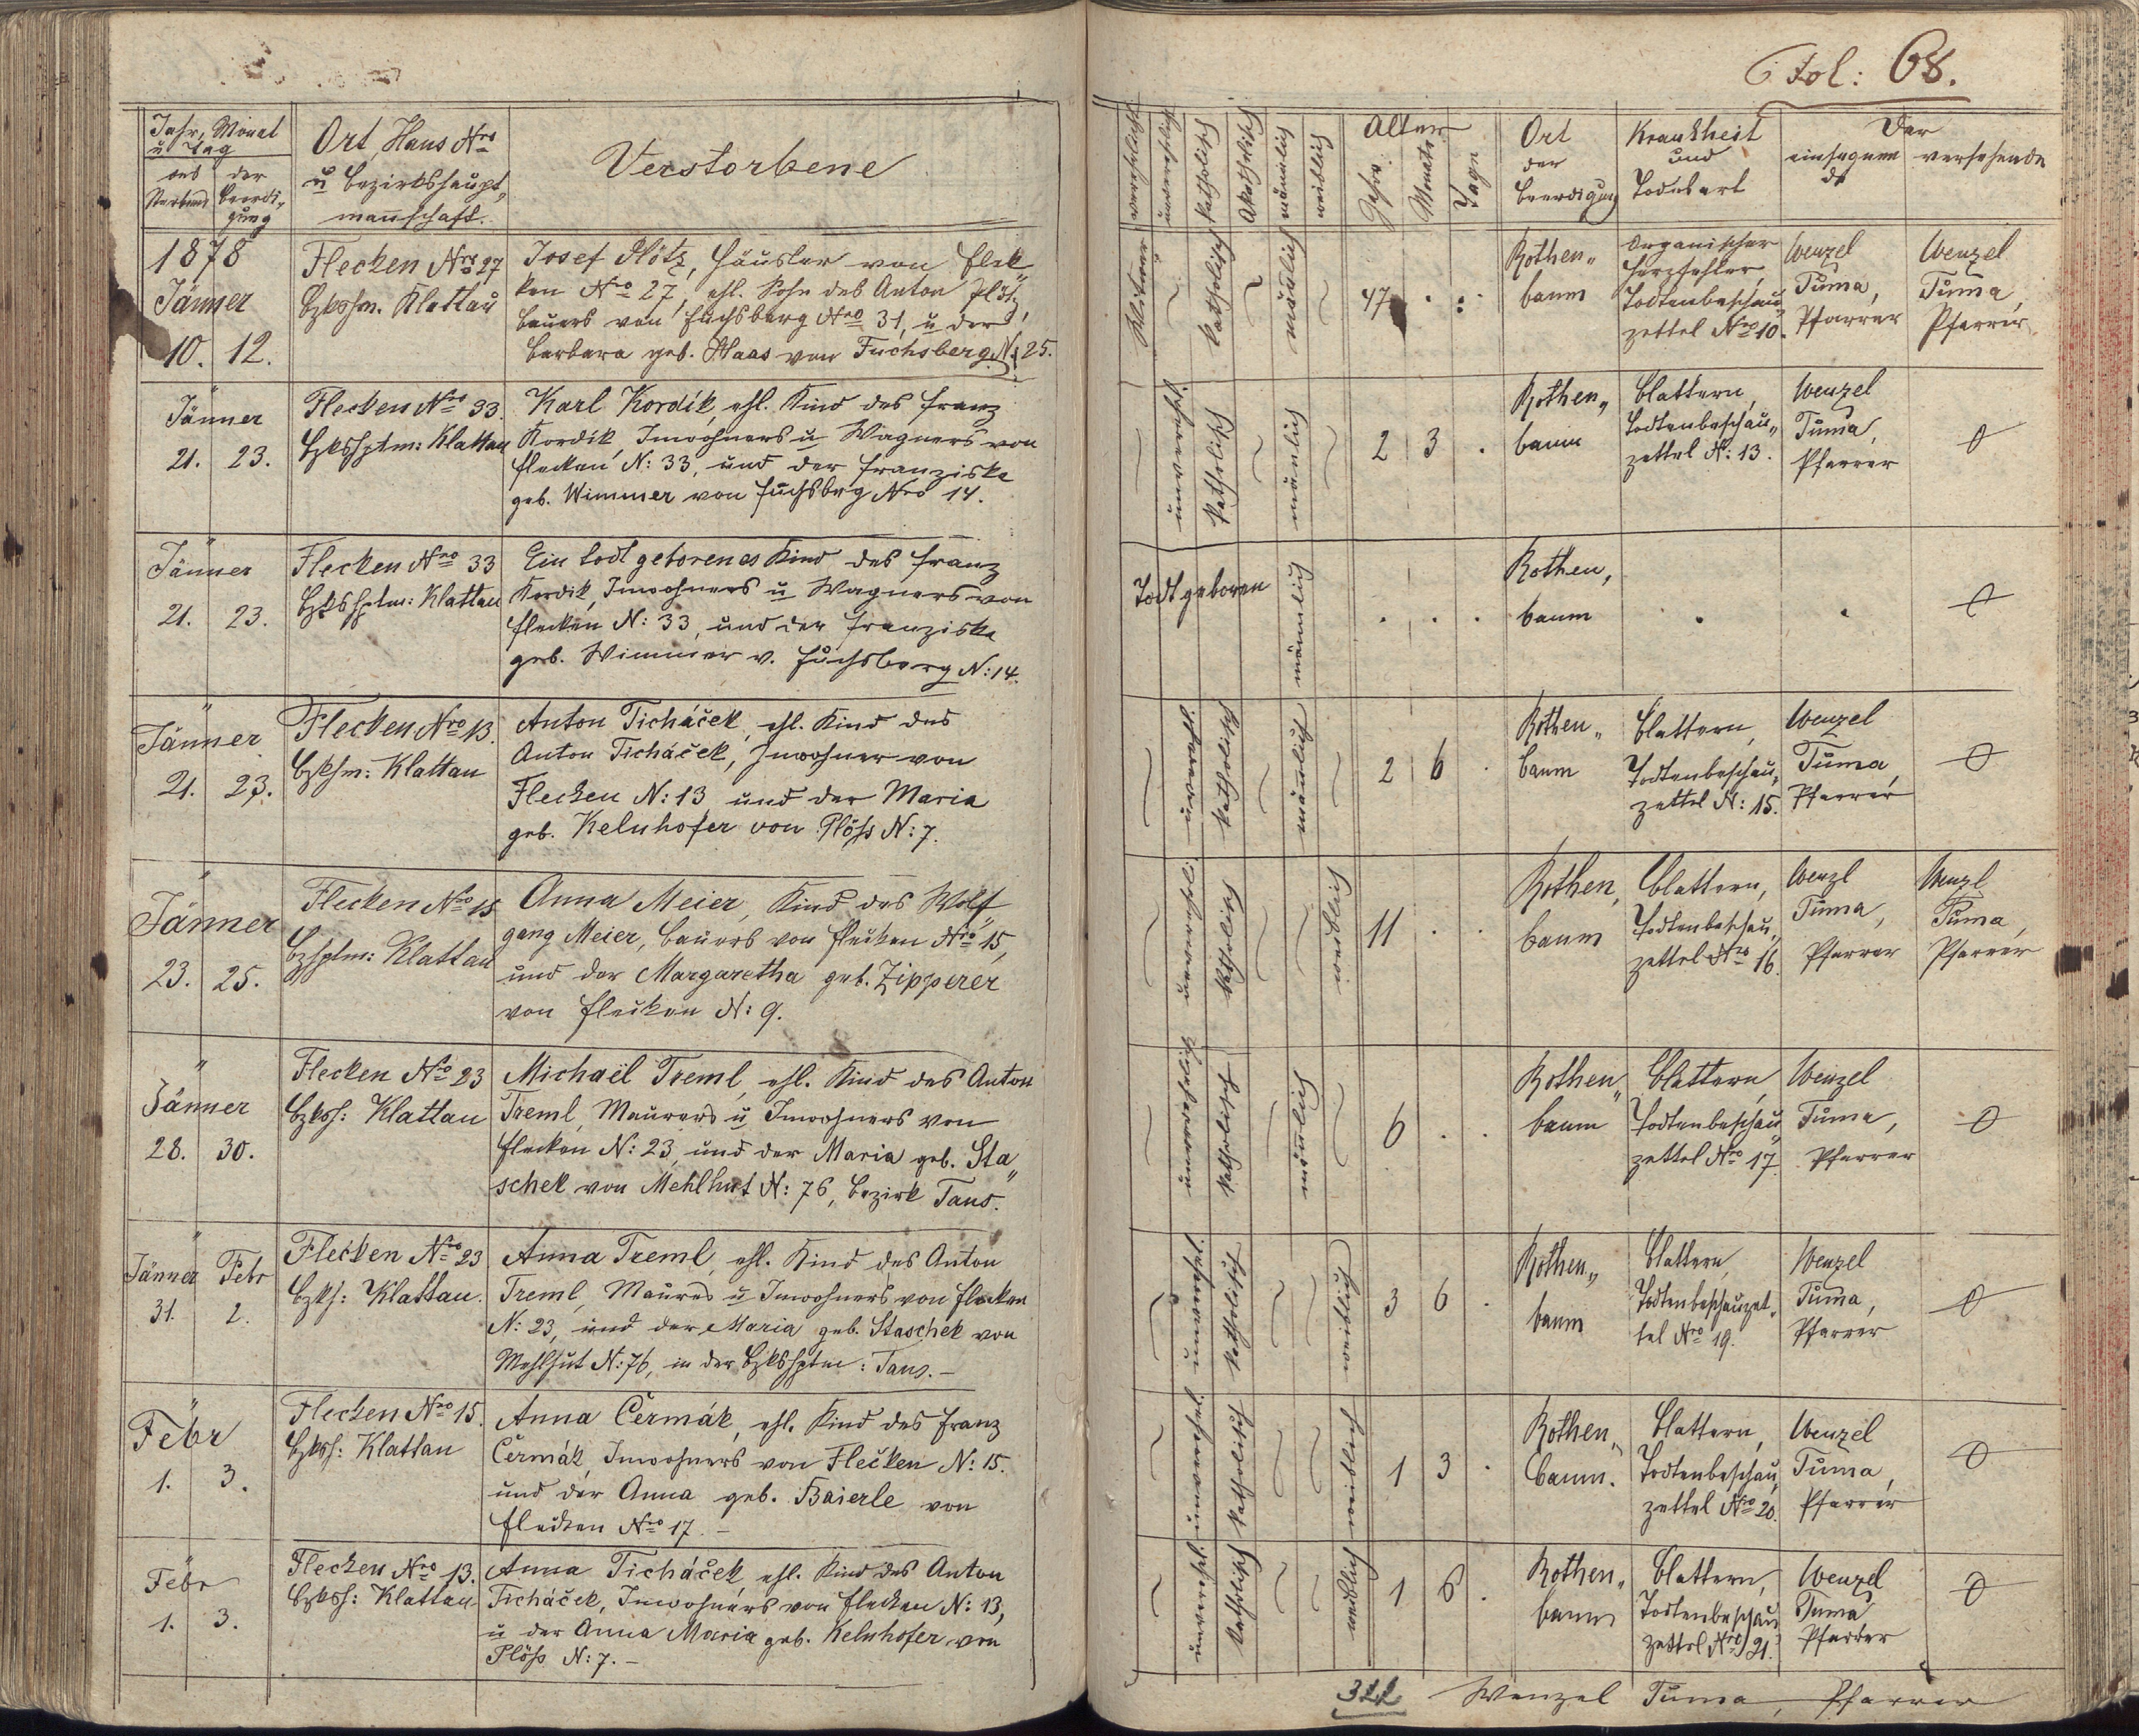 Fol: 68.
Jahr, Monat
u Tag
des
Sterbens
der
Beerdi„
gung
Ort, Haus Nro
u Bezirkshaupt„
mannschaft.
Verstorbene
verehelicht
unverehelicht
katholisch
Akatholisch
männlich
weiblich
Alter
Jahre
Monate
Tage
Ort
der
Beerdigung
Krankheit
und
Todesart
Der
einsegnen
de
versehende
1878
Jänner
10. 12.
Flecken Nro 27
Bzkshm. Klattau
Josef Plötz, Häusler von Flek„
ken Nro 27, ehl. Sohn des Anton Plötz,
Bauers von Fuchsberg Nro 31, u der
Barbara geb. Haas von Fuchsberg N: 25.
Witwer
katholisch
mänlich
47 . .
Rothen„
baum
Organischer
Herzfehler,
Todtenbeschau
zettel Nro 10.
Wenzel
Tuma,
Pfarrer
Wenzel
Tuma,
Pfarrer
Jänner
21. 23.
Flecken Nro 33
Bzkshptm: Klattau
Karl Kordik, ehl. Kind des Franz
Kordik, Inwohners u Wagners von
Flecken N: 33, und der Franziska
geb. Wimmer von Fuchsbrg Nro 14.
unverehl.
katholisch
mänlich
2 3 .
Rothen„
baum
Blattern,
Todtenbeschau„
zettel N: 13.
Wenzel
Tuma,
Pfarrer
Jänner
21. 23.
Flecken Nro 33
Bzkshptm: Klattau
Ein todt geborenes Kind des Franz
Kordik, Inwohners u Wagners von
Flecken N: 33, und der Franziska
geb. Wimmer v. Fuchsberg N: 14.
Todt geboren
männlich
. . .
Rothen„
baum
Jänner
21. 23.
Flecken Nro 13.
Bzkhm: Klattau
Anton Ticháček, ehl. Kind des
Anton Ticháček, Inwohner von
Flecken N: 13 und der Maria
geb. Kelnhofer von Plöss N: 7.
unverehl.
katholisch
mänlich
2 6 .
Rothen„
baum
Blattern,
Todtenbeschau„
zettel N: 15.
Wenzel
Tuma,
Pfarrer
Jänner
23. 25.
Flecken Nro 15
Bzhptm: Klattau
Anna Meier, Kind des Wolf„
gang Meier, Bauers von Flecken Nro 15,
und der Margaretha geb. Zipperer
von Flecken N: 9.
unverehel.
katholisch
weiblich
11 . .
Rothen„
baum
Blattern,
Todtenbeschau„
zettel Nro 16.
Wenzl
Tuma,
Pfarrer
Wenzl
Tuma,
Pfarrer
Jänner
28. 30.
Flecken Nro 23
Bzksh: Klattau
Michaël Treml, ehl. Kind des Anton
Treml, Maurers u Inwohners von
Flecken N: 23, und der Maria geb. Sta„
schek von Mehlhut N: 76, Bezirk Taus.
unverehelich
katholisch
mänlich
6 . .
Rothen„
baum
Blattern,
Todtenbeschau
zettel Nro 17.
Wenzel
Tuma,
Pfarrer
Jänner Febr
31. 2.
Flecken Nro 23
Bzkh: Klattau.
Anna Treml, ehl. Kind des Anton
Treml, Maurers u Inwohners von Flecken
N: 23, und der Maria geb. Staschek von
Mehlhut N: 76, in der Bzkshptm: Taus. –
unverehel.
katholisch
weiblich
3 6 .
Rothen„
baum
Blattern,
Todtenbeschauzet„
tel Nro 19.
Wenzel
Tuma,
Pfarrer
Febr
1. 3.
Flecken Nro 15.
Bzksh: Klattau
Anna Čermák, ehl. Kind des Franz
Čermák, Inwohners von Flecken N: 15.
und der Anna geb. Baierle von
Flecken Nro 17. –
unverehel.
katholisch
weiblich
1 3 .
Rothen„
baum.
Blattern,
Todtenbeschau„
zettel Nro 20.
Wenzel
Tuma,
Pfarrer
Febr
1. 3.
Flecken Nro 13.
Bzksh: Klattau
Anna Ticháček, ehl. Kind des Anton
Ticháček, Inwohners von Flecken N: 13,
u der Anna Maria geb. Kelnhofer von
Plöss N: 7. –
unverehel.
katholisch
weiblich
1 6 .
Rothen„
baum
Blattern,
Todtenbeschau
zettel Nro 21.
Wenzel
Tuma
Pfarrer
322 Wenzel Tuma, Pfarrer